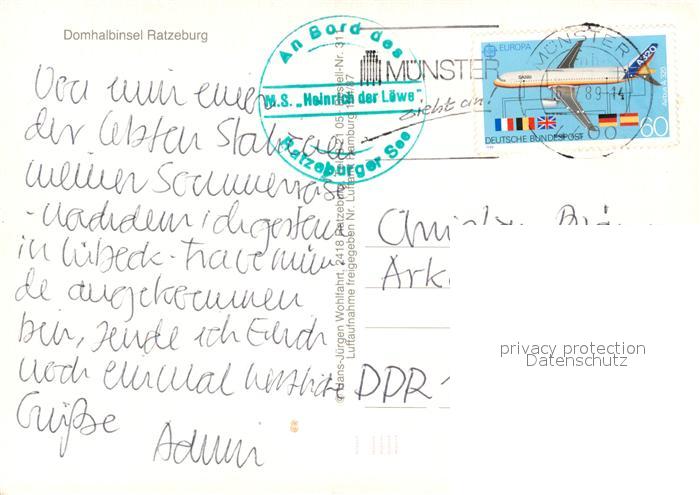 Domhalbinsel Ratzeburg
An Bord des
M.S. „Heinrich der Löwe"
Ratzeburger See
MÜNSTER
zieht an!
MÜNSTER
89-14
EUROPA
A320
Airbus A 320
DEUTSCHE BUNDESPOST
60
Von mir einen
der letzten
meiner Sommerreise
- nachdem ich gestern
in Lübeck-Travemün-
de angekommen
bin, sende ich Euch
noch einmal herzliche
Grüße
© Hans-Jürgen Wohlfahrt, 2418 Ratzeburg
Luftaufnahme freigegeben Nr. Luftamt Hamburg
DDR
privacy protection
Datenschutz